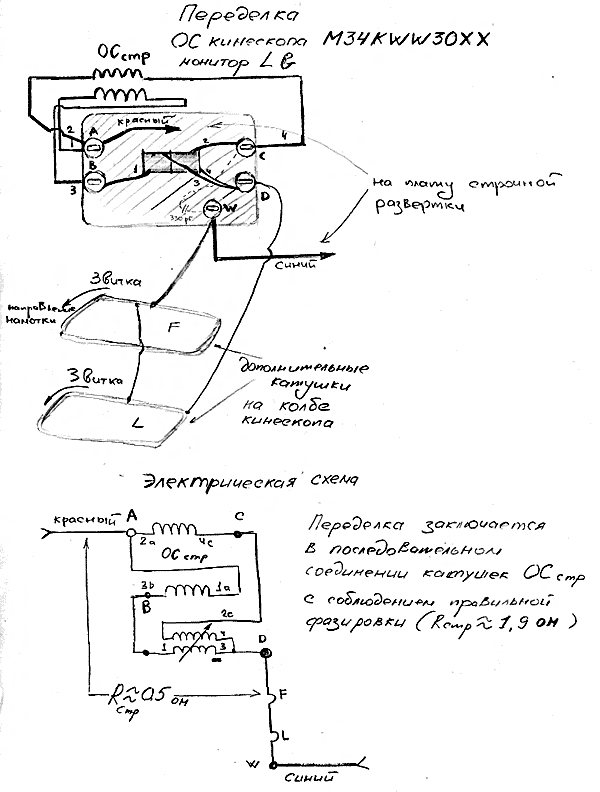 Переделка
ОС кинескопа M34KWW30XX
монитор LG
ОС стр
красный
2
A
1
2
4
C
B
1
3
3
D
W
330 pF
на плату строчной
развертки
синий
3 витка
направление
намотки
F
3 витка
L
дополнительные
катушки
на колбе
кинескопа
Электрическая схема
красный
A
C
2a
4c
ОС стр
3b
1a
B
2c
4
1
3
D
R стр ≈ 0,5 ом
F
L
W
синий
Переделка заключается
в последовательном
соединении катушек ОС стр
с соблюдением правильной
фазировки (R стр ≈ 1,9 ом)